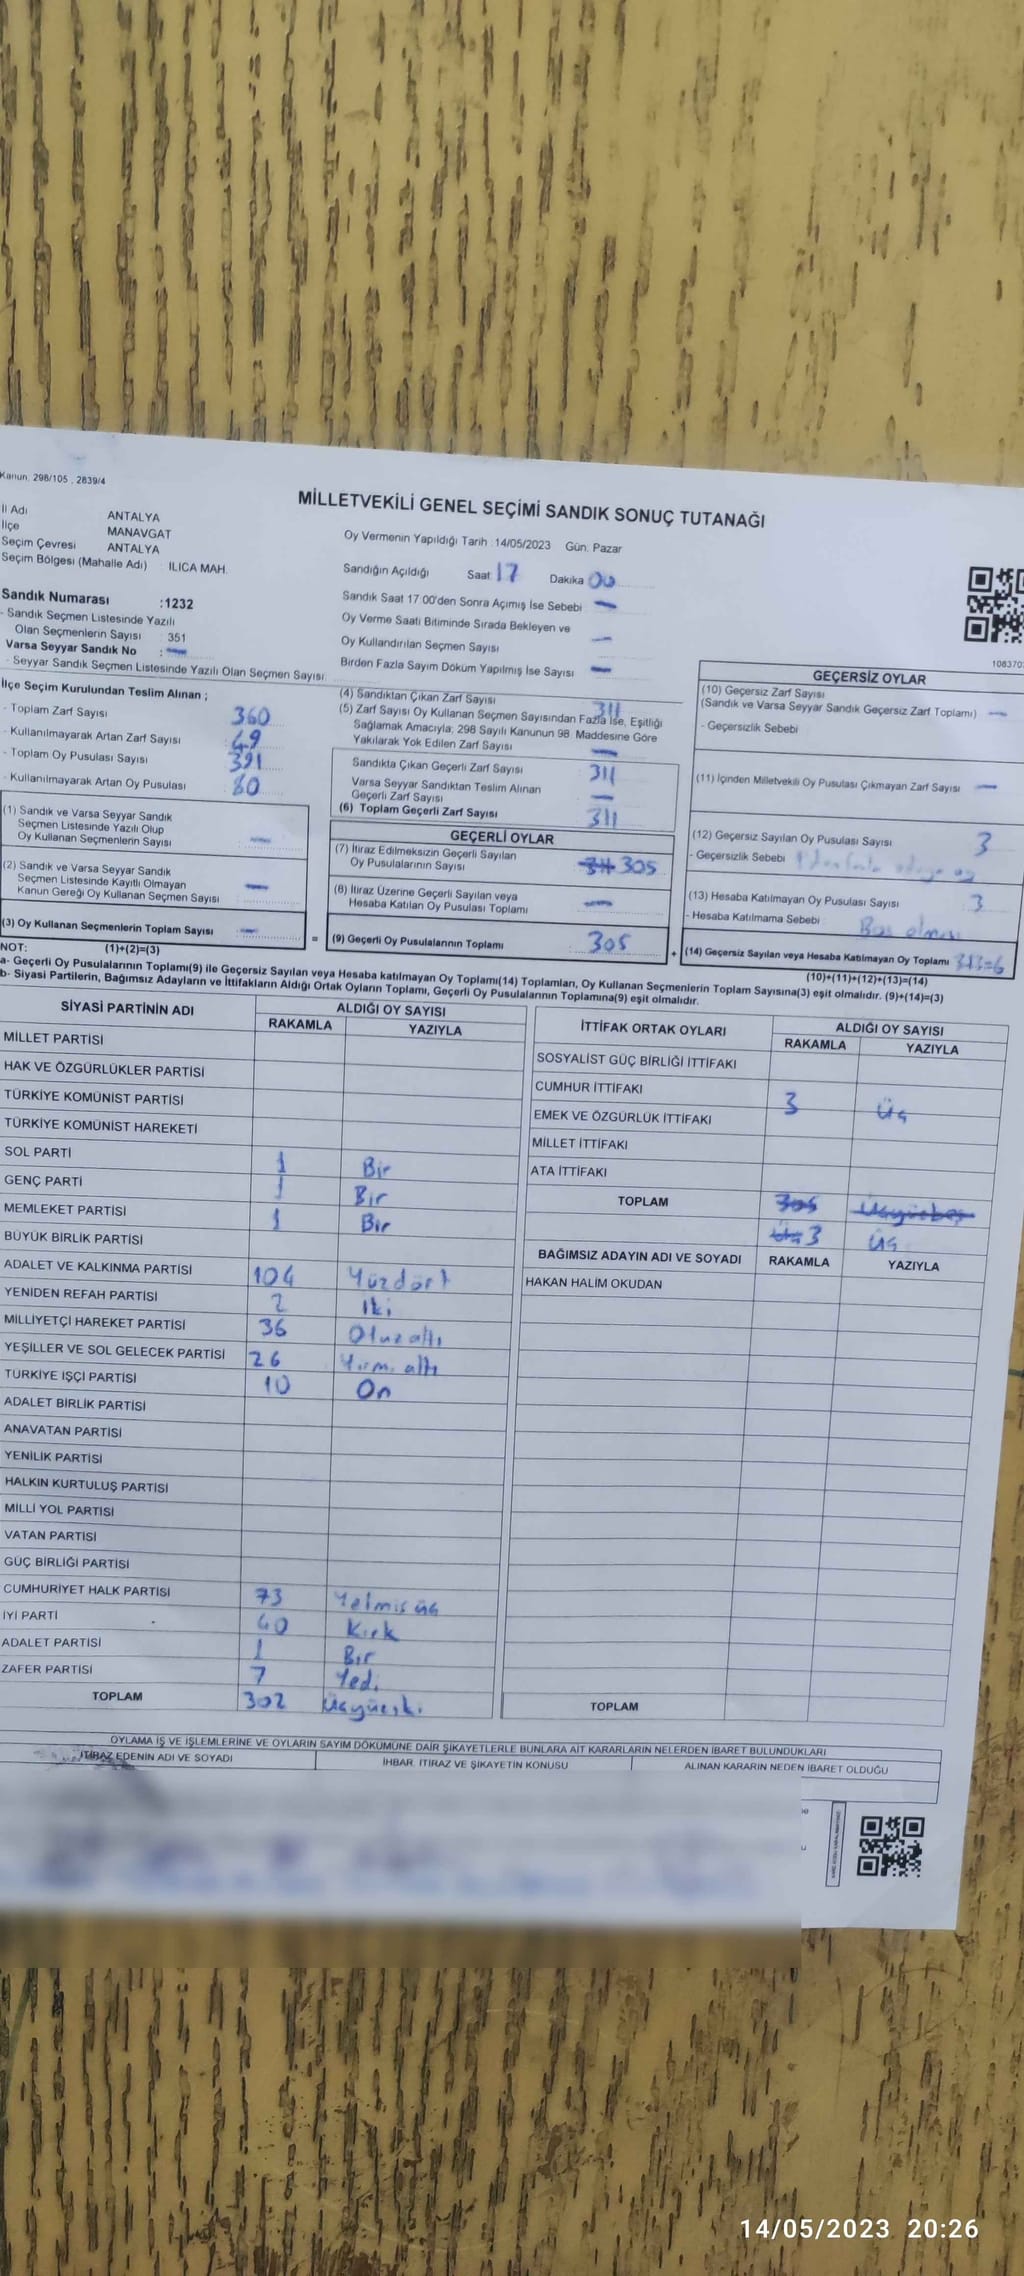 Kanun: 298/105 , 2839/4
MİLLETVEKİLİ GENEL SEÇİMİ SANDIK SONUÇ TUTANAĞI
İl Adı ANTALYA
İlçe MANAVGAT
Seçim Çevresi ANTALYA
Seçim Bölgesi (Mahalle Adı) : ILICA MAH.
Oy Vermenin Yapıldığı Tarih :14/05/2023 Gün: Pazar
Sandığın Açıldığı Saat 17 Dakika 00
Sandık Numarası :1232
- Sandık Seçmen Listesinde Yazılı
Olan Seçmenlerin Sayısı : 351
Varsa Seyyar Sandık No : —
- Seyyar Sandık Seçmen Listesinde Yazılı Olan Seçmen Sayısı:
Sandık Saat 17 00'den Sonra Açımış İse Sebebi —
Oy Verme Saati Bitiminde Sırada Bekleyen ve
Oy Kullandırılan Seçmen Sayısı —
Birden Fazla Sayım Döküm Yapılmış İse Sayısı —
İlçe Seçim Kurulundan Teslim Alınan ;
- Toplam Zarf Sayısı 360
- Kullanılmayarak Artan Zarf Sayısı 49
- Toplam Oy Pusulası Sayısı 391
- Kullanılmayarak Artan Oy Pusulası 80
(1) Sandık ve Varsa Seyyar Sandık
Seçmen Listesinde Yazılı Olup
Oy Kullanan Seçmenlerin Sayısı —
(2) Sandık ve Varsa Seyyar Sandık
Seçmen Listesinde Kayıtlı Olmayan
Kanun Gereği Oy Kullanan Seçmen Sayısı —
(3) Oy Kullanan Seçmenlerin Toplam Sayısı —
(4) Sandıktan Çıkan Zarf Sayısı 311
(5) Zarf Sayısı Oy Kullanan Seçmen Sayısından Fazla İse, Eşitliği
Sağlamak Amacıyla; 298 Sayılı Kanunun 98. Maddesine Göre
Yakılarak Yok Edilen Zarf Sayısı —
Sandıkta Çıkan Geçerli Zarf Sayısı 311
Varsa Seyyar Sandıktan Teslim Alınan
Geçerli Zarf Sayısı —
(6) Toplam Geçerli Zarf Sayısı 311
GEÇERLİ OYLAR
(7) İtiraz Edilmeksizin Geçerli Sayılan
Oy Pusulalarının Sayısı 311 305
(8) İtiraz Üzerine Geçerli Sayılan veya
Hesaba Katılan Oy Pusulası Toplamı —
= (9) Geçerli Oy Pusulalarının Toplamı : 305 +
GEÇERSİZ OYLAR
(10) Geçersiz Zarf Sayısı
(Sandık ve Varsa Seyyar Sandık Geçersiz Zarf Toplamı) —
- Geçersizlik Sebebi
(11) İçinden Milletvekili Oy Pusulası Çıkmayan Zarf Sayısı —
(12) Geçersiz Sayılan Oy Pusulası Sayısı 3
- Geçersizlik Sebebi
(13) Hesaba Katılmayan Oy Pusulası Sayısı 3
- Hesaba Katılmama Sebebi Boş olması
(14) Geçersiz Sayılan veya Hesaba Katılmayan Oy Toplamı 3+3=6
NOT: (1)+(2)=(3)
(10)+(11)+(12)+(13)=(14)
a- Geçerli Oy Pusulalarının Toplamı(9) ile Geçersiz Sayılan veya Hesaba katılmayan Oy Toplamı(14) Toplamları, Oy Kullanan Seçmenlerin Toplam Sayısına(3) eşit olmalıdır. (9)+(14)=(3)
b- Siyasi Partilerin, Bağımsız Adayların ve İttifakların Aldığı Ortak Oyların Toplamı, Geçerli Oy Pusulalarının Toplamına(9) eşit olmalıdır.
SİYASİ PARTİNİN ADI ALDIĞI OY SAYISI
RAKAMLA YAZIYLA
MİLLET PARTİSİ
HAK VE ÖZGÜRLÜKLER PARTİSİ
TÜRKİYE KOMÜNİST PARTİSİ
TÜRKİYE KOMÜNİST HAREKETİ
SOL PARTİ 1 Bir
GENÇ PARTİ 1 Bir
MEMLEKET PARTİSİ 1 Bir
BÜYÜK BİRLİK PARTİSİ
ADALET VE KALKINMA PARTİSİ 104 Yüzdört
YENİDEN REFAH PARTİSİ 2 İki
MİLLİYETÇİ HAREKET PARTİSİ 36 Otuzaltı
YEŞİLLER VE SOL GELECEK PARTİSİ 26 Yirmi altı
TÜRKİYE İŞÇİ PARTİSİ 10 On
ADALET BİRLİK PARTİSİ
ANAVATAN PARTİSİ
YENİLİK PARTİSİ
HALKIN KURTULUŞ PARTİSİ
MİLLİ YOL PARTİSİ
VATAN PARTİSİ
GÜÇ BİRLİĞİ PARTİSİ
CUMHURİYET HALK PARTİSİ 73 Yetmiş üç
İYİ PARTİ 40 Kırk
ADALET PARTİSİ 1 Bir
ZAFER PARTİSİ 7 Yedi
TOPLAM 302 Üçyüziki
İTTİFAK ORTAK OYLARI ALDIĞI OY SAYISI
RAKAMLA YAZIYLA
SOSYALİST GÜÇ BİRLİĞİ İTTİFAKI
CUMHUR İTTİFAKI 3 Üç
EMEK VE ÖZGÜRLÜK İTTİFAKI
MİLLET İTTİFAKI
ATA İTTİFAKI
TOPLAM 305 Üçyüzbeş
Üç 3 Üç
BAĞIMSIZ ADAYIN ADI VE SOYADI RAKAMLA YAZIYLA
HAKAN HALİM OKUDAN
TOPLAM
OYLAMA İŞ VE İŞLEMLERİNE VE OYLARIN SAYIM DÖKÜMÜNE DAİR ŞİKAYETLERLE BUNLARA AİT KARARLARIN NELERDEN İBARET BULUNDUKLARI
İTİRAZ EDENİN ADI VE SOYADI İHBAR, İTİRAZ VE ŞİKAYETİN KONUSU ALINAN KARARIN NEDEN İBARET OLDUĞU
14/05/2023 20:26